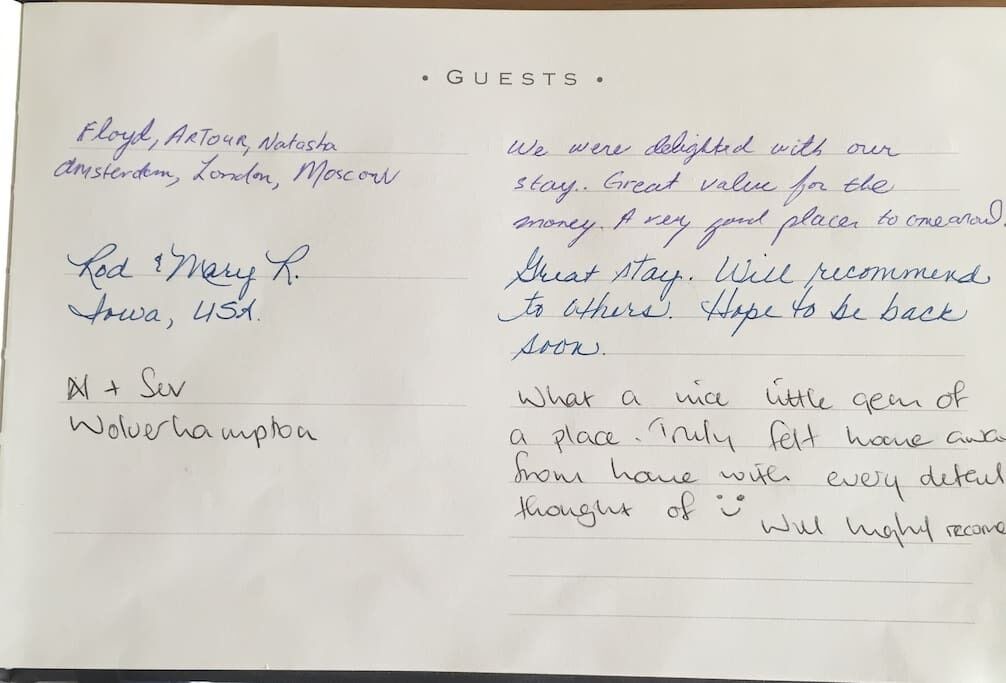 • GUESTS •
Floyd, ARTOUR, Natasha
Amsterdam, London, Moscow
We were delighted with our
stay.. Great value for the
money. A very good places to
Rod & Mary R.
Iowa, USA.
Great stay. Will recommend
to others. Hope to be back
soon.
+ Sev
Wolverhampton
What a nice little gem of
a place. Truly felt home awa
from home with every detail
thought of
Will highly recome